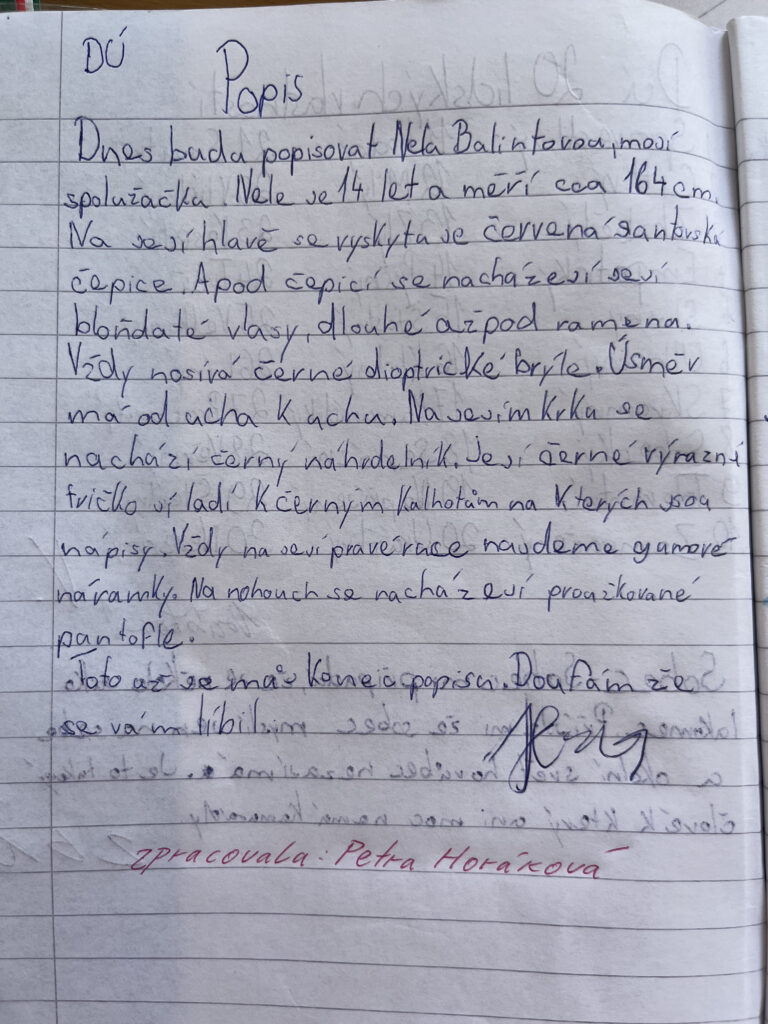 DÚ
Popis
Dnes budu popisovat Nela Balintovou, mojí
spolužačku. Nele je 14 let a měří cca 164 cm.
Na její hlavě se vyskytuje červená santovská
čepice. A pod čepicí se nacházejí její
bloňdaté vlasy, dlouhé až pod ramena.
Vždy nosívá černé dioptrické brýle. Úsměv
má od ucha k uchu. Na jejím krku se
nachází černý náhrdelník. Její černé výrazné
tričko jí ladí k černým kalhotám na kterých jsou
nápisy. Vždy na její pravé ruce najdeme gumové
náramky. Na nohouch se nacházejí proužkované
pantofle.
Toto až je můj konec popisu. Doufám že
se vám líbil.
zpracovala: Petra Horáková